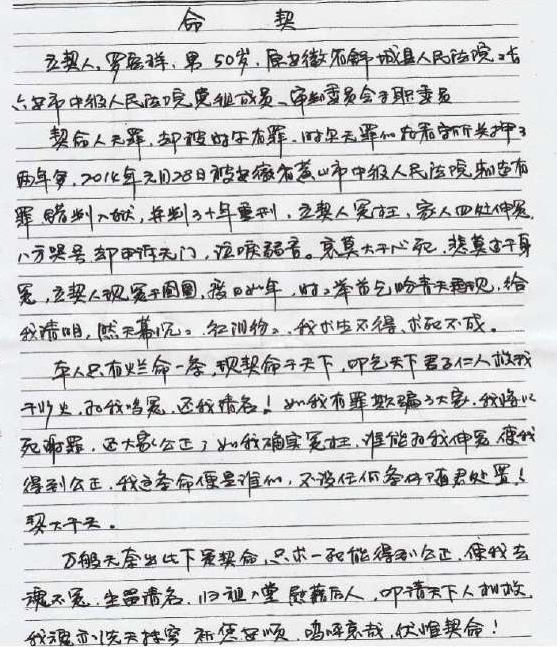 命 契
立契人,罗会祥,男 50岁,原安徽省舒城县人民法院院长
六安市中级人民法院党组成员、审判委员会专职委员
契命人无罪,却被
两年多,2014年 月28日被安徽省黄山市中级人民法院判定有
罪 错判入狱,并判 十年重刑,立契人冤枉,家人四处伸冤,
八方哭号 却申诉无门,沉疾弱音。哀莫大于心死,悲莫 于身
冤,立契人现冤于囹圄,度日如年,时 举首乞盼青天再现,给
我清明,然天幕沉沉。红泪纷纷。我求生不得,求死不成。
本人只有烂命一条,现契命于天下,叩乞天下君子仁人救我
于 火,为我鸣冤,还我清名!如我有罪欺骗了大家,我将以
死谢罪,还大家公正;如我确实冤枉,谁能为我伸冤 使我
得到公正,我这条命便是谁的,不设任何条件 随君处置!
契大于天。
万般无奈出此下 契命,只求一死能得到公正,使我去
魂不冤,生留清名,归祖入堂 慰藉后人,叩请天下人相救,
我魂 呜呼哀哉,伏惟契命!